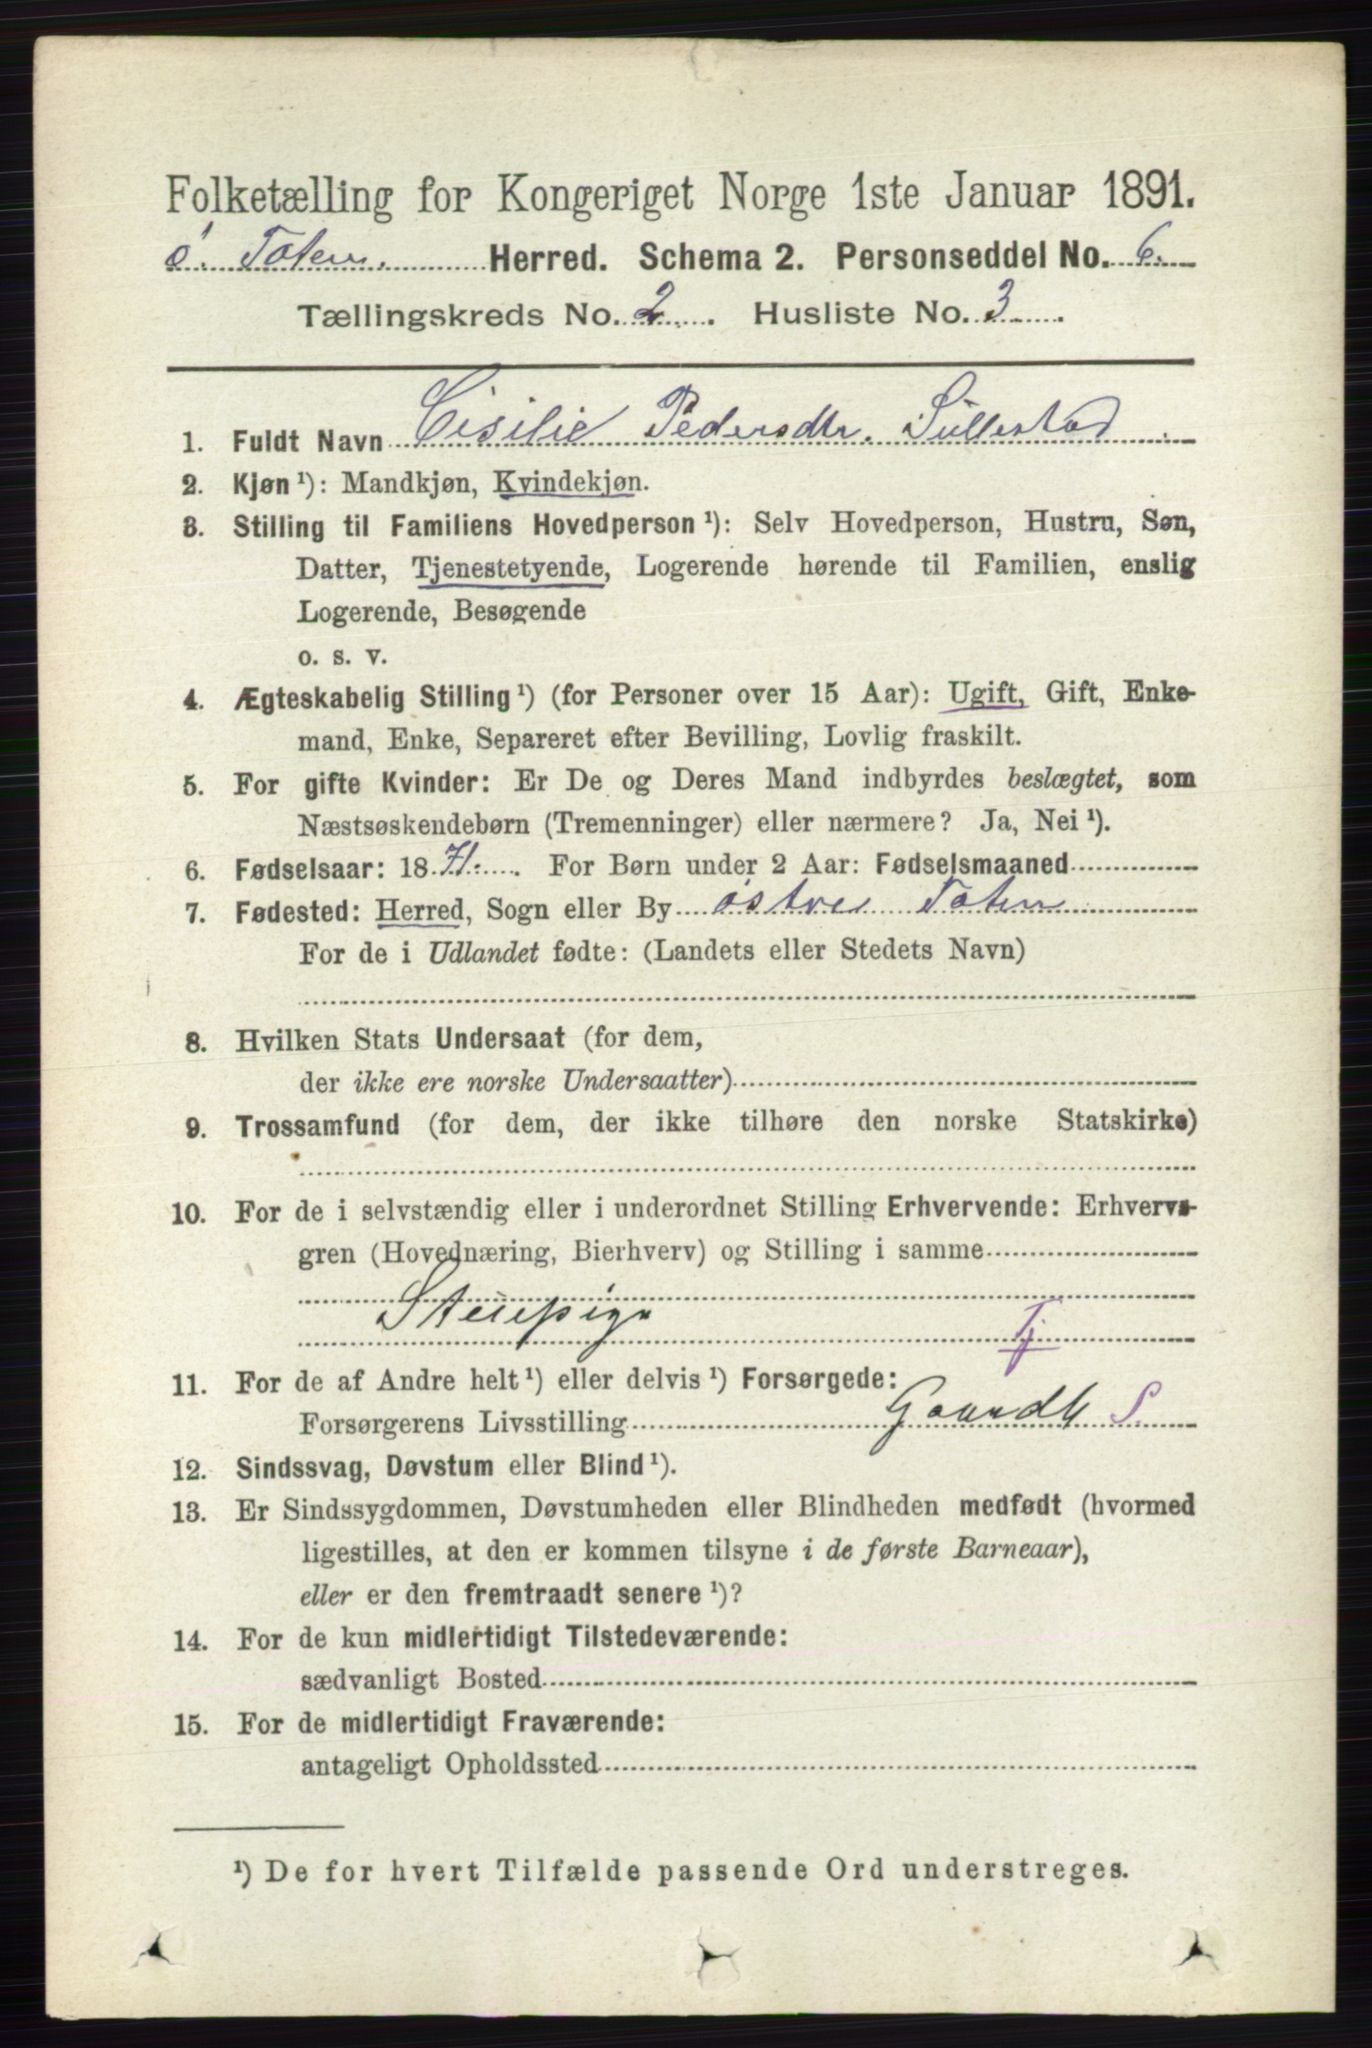 Folketælling for Kongeriget Norge 1ste Januar 1891.
Ø. Toten. Herred. Schema 2. Personseddel No. 6.
Tællingskreds No. 2. Husliste No. 3.
1. Fuldt Navn Cisilie Pedersdtr. Sullestad
2. Kjøn ¹): Mandkjøn, Kvindekjøn.
3. Stilling til Familiens Hovedperson ¹): Selv Hovedperson, Hustru, Søn,
Datter, Tjenestetyende, Logerende hørende til Familien, enslig
Logerende, Besøgende
o. s. v.
4. Ægteskabelig Stilling ¹) (for Personer over 15 Aar): Ugift, Gift, Enke-
mand, Enke, Separeret efter Bevilling, Lovlig fraskilt.
5. For gifte Kvinder: Er De og Deres Mand indbyrdes beslægtet, som
Næstsøskendebørn (Tremenninger) eller nærmere? Ja, Nei ¹).
6. Fødselsaar: 1871. For Børn under 2 Aar: Fødselsmaaned
7. Fødested: Herred, Sogn eller By østre Toten
For de i Udlandet fødte: (Landets eller Stedets Navn)
8. Hvilken Stats Undersaat (for dem,
der ikke ere norske Undersaatter)
9. Trossamfund (for dem, der ikke tilhøre den norske Statskirke)
10. For de i selvstændig eller i underordnet Stilling Erhvervende: Erhvervs-
gren (Hovednæring, Bierhverv) og Stilling i samme
Stuepige Tj
11. For de af Andre helt ¹) eller delvis ¹) Forsørgede:
Forsørgerens Livsstilling Gaardb S.
12. Sindssvag, Døvstum eller Blind ¹).
13. Er Sindssygdommen, Døvstumheden eller Blindheden medfødt (hvormed
ligestilles, at den er kommen tilsyne i de første Barneaar),
eller er den fremtraadt senere ¹)?
14. For de kun midlertidigt Tilstedeværende:
sædvanligt Bosted
15. For de midlertidigt Fraværende:
antageligt Opholdssted
¹) De for hvert Tilfælde passende Ord understreges.